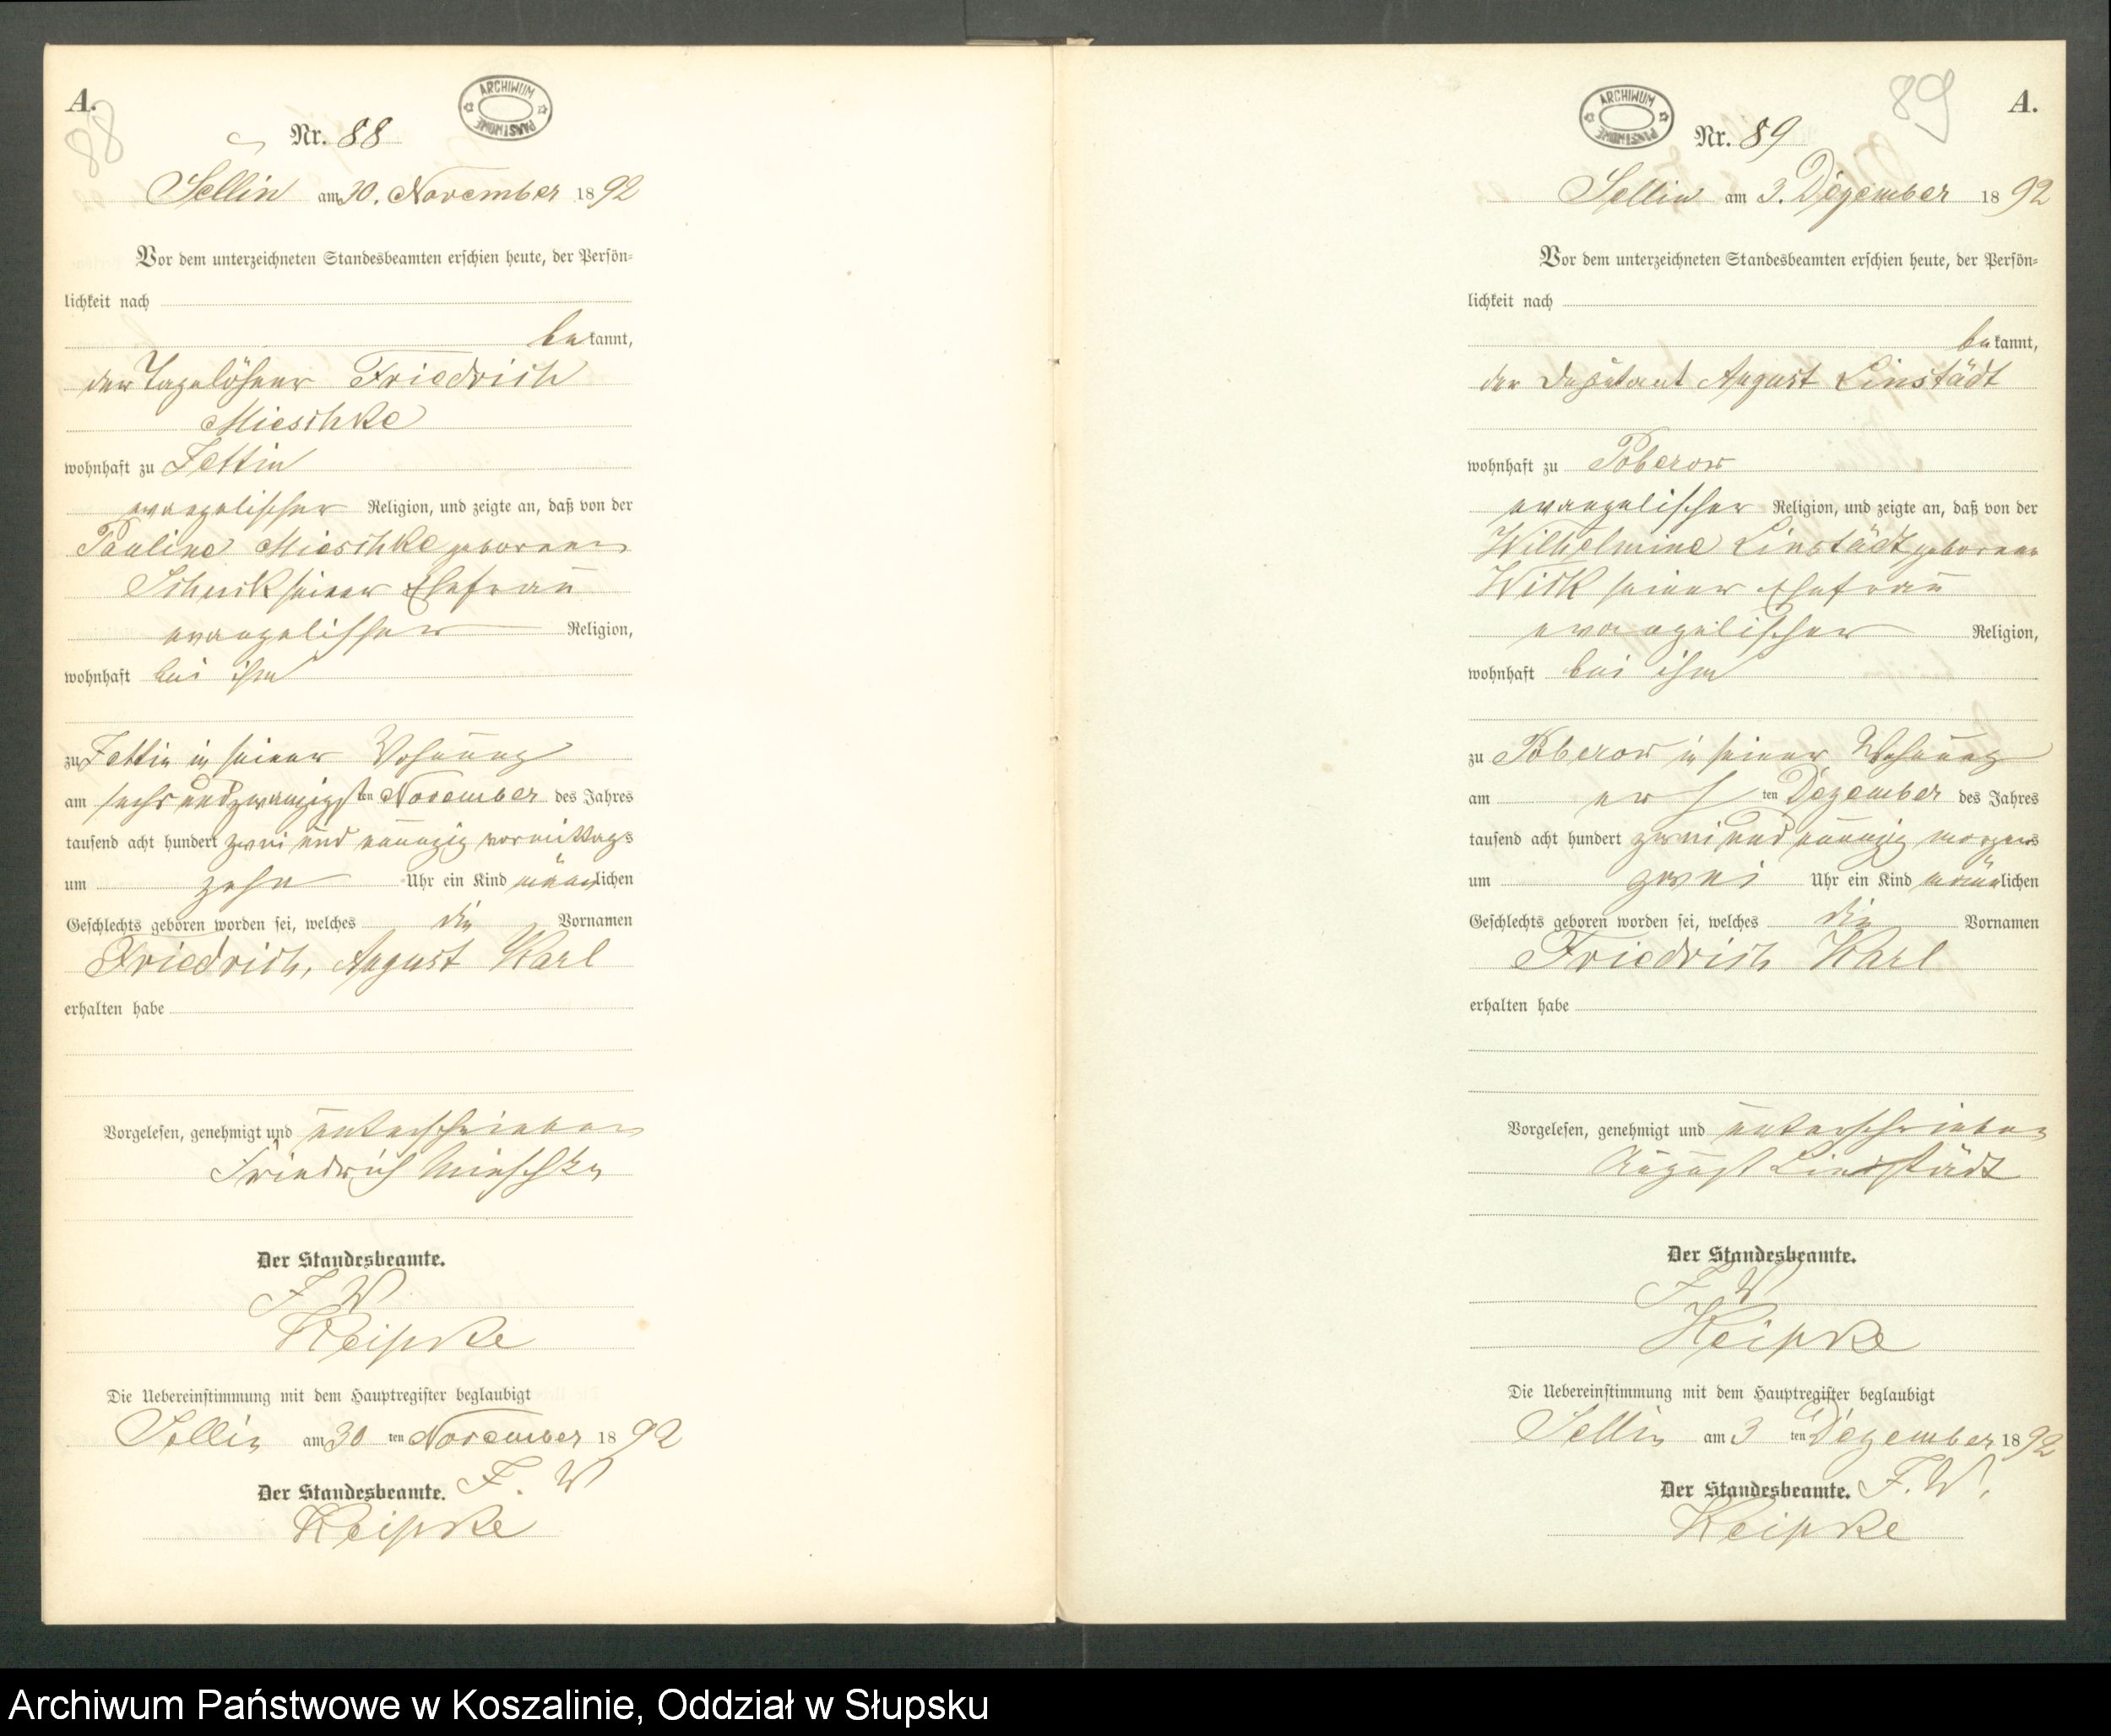 A.
88
ARCHIWUM
PAŃSTWOWE
Nr. 88
Sellin am 30. November 1892
Vor dem unterzeichneten Standesbeamten erschien heute, der Persön-
lichkeit nach
bekannt,
der Tagelöhner Friedrich
Mieschke
wohnhaft zu Zettin
evangelischer Religion, und zeigte an, daß von der
Pauline Mieschke geborenen
Schuck seiner Ehefrau
evangelischer Religion,
wohnhaft bei ihm
zu Zettin in seiner Wohnung
am sechsundzwanzigsten November des Jahres
tausend acht hundert zwei und neunzig vormittags
um zehn Uhr ein Kind männlichen
Geschlechts geboren worden sei, welches die Vornamen
Friedrich, August Karl
erhalten habe
Vorgelesen, genehmigt und unterschrieben
Friedrich Mieschke
Der Standesbeamte.
F W
Keipke
Die Uebereinstimmung mit dem Hauptregister beglaubigt
Sellin am 30 ten November 1892
Der Standesbeamte. F. W
Keipke
89
A.
ARCHIWUM
PAŃSTWOWE
Nr. 89
Sellin am 3. Dezember 1892
Vor dem unterzeichneten Standesbeamten erschien heute, der Persön-
lichkeit nach
bekannt,
der Deputant August Linstädt
wohnhaft zu Poberow
evangelischer Religion, und zeigte an, daß von der
Wilhelmine Linstädt geborenen
Wick seiner Ehefrau
evangelischer Religion,
wohnhaft bei ihm
zu Poberow in seiner Wohnung
am ersten Dezember des Jahres
tausend acht hundert zwei und neunzig morgens
um zwei Uhr ein Kind männlichen
Geschlechts geboren worden sei, welches die Vornamen
Friedrich Karl
erhalten habe
Vorgelesen, genehmigt und unterschrieben
August Lindstädt
Der Standesbeamte.
F W
Keipke
Die Uebereinstimmung mit dem Hauptregister beglaubigt
Sellin am 3 ten Dezember 1892
Der Standesbeamte. F. W.
Keipke
Archiwum Państwowe w Koszalinie, Oddział w Słupsku